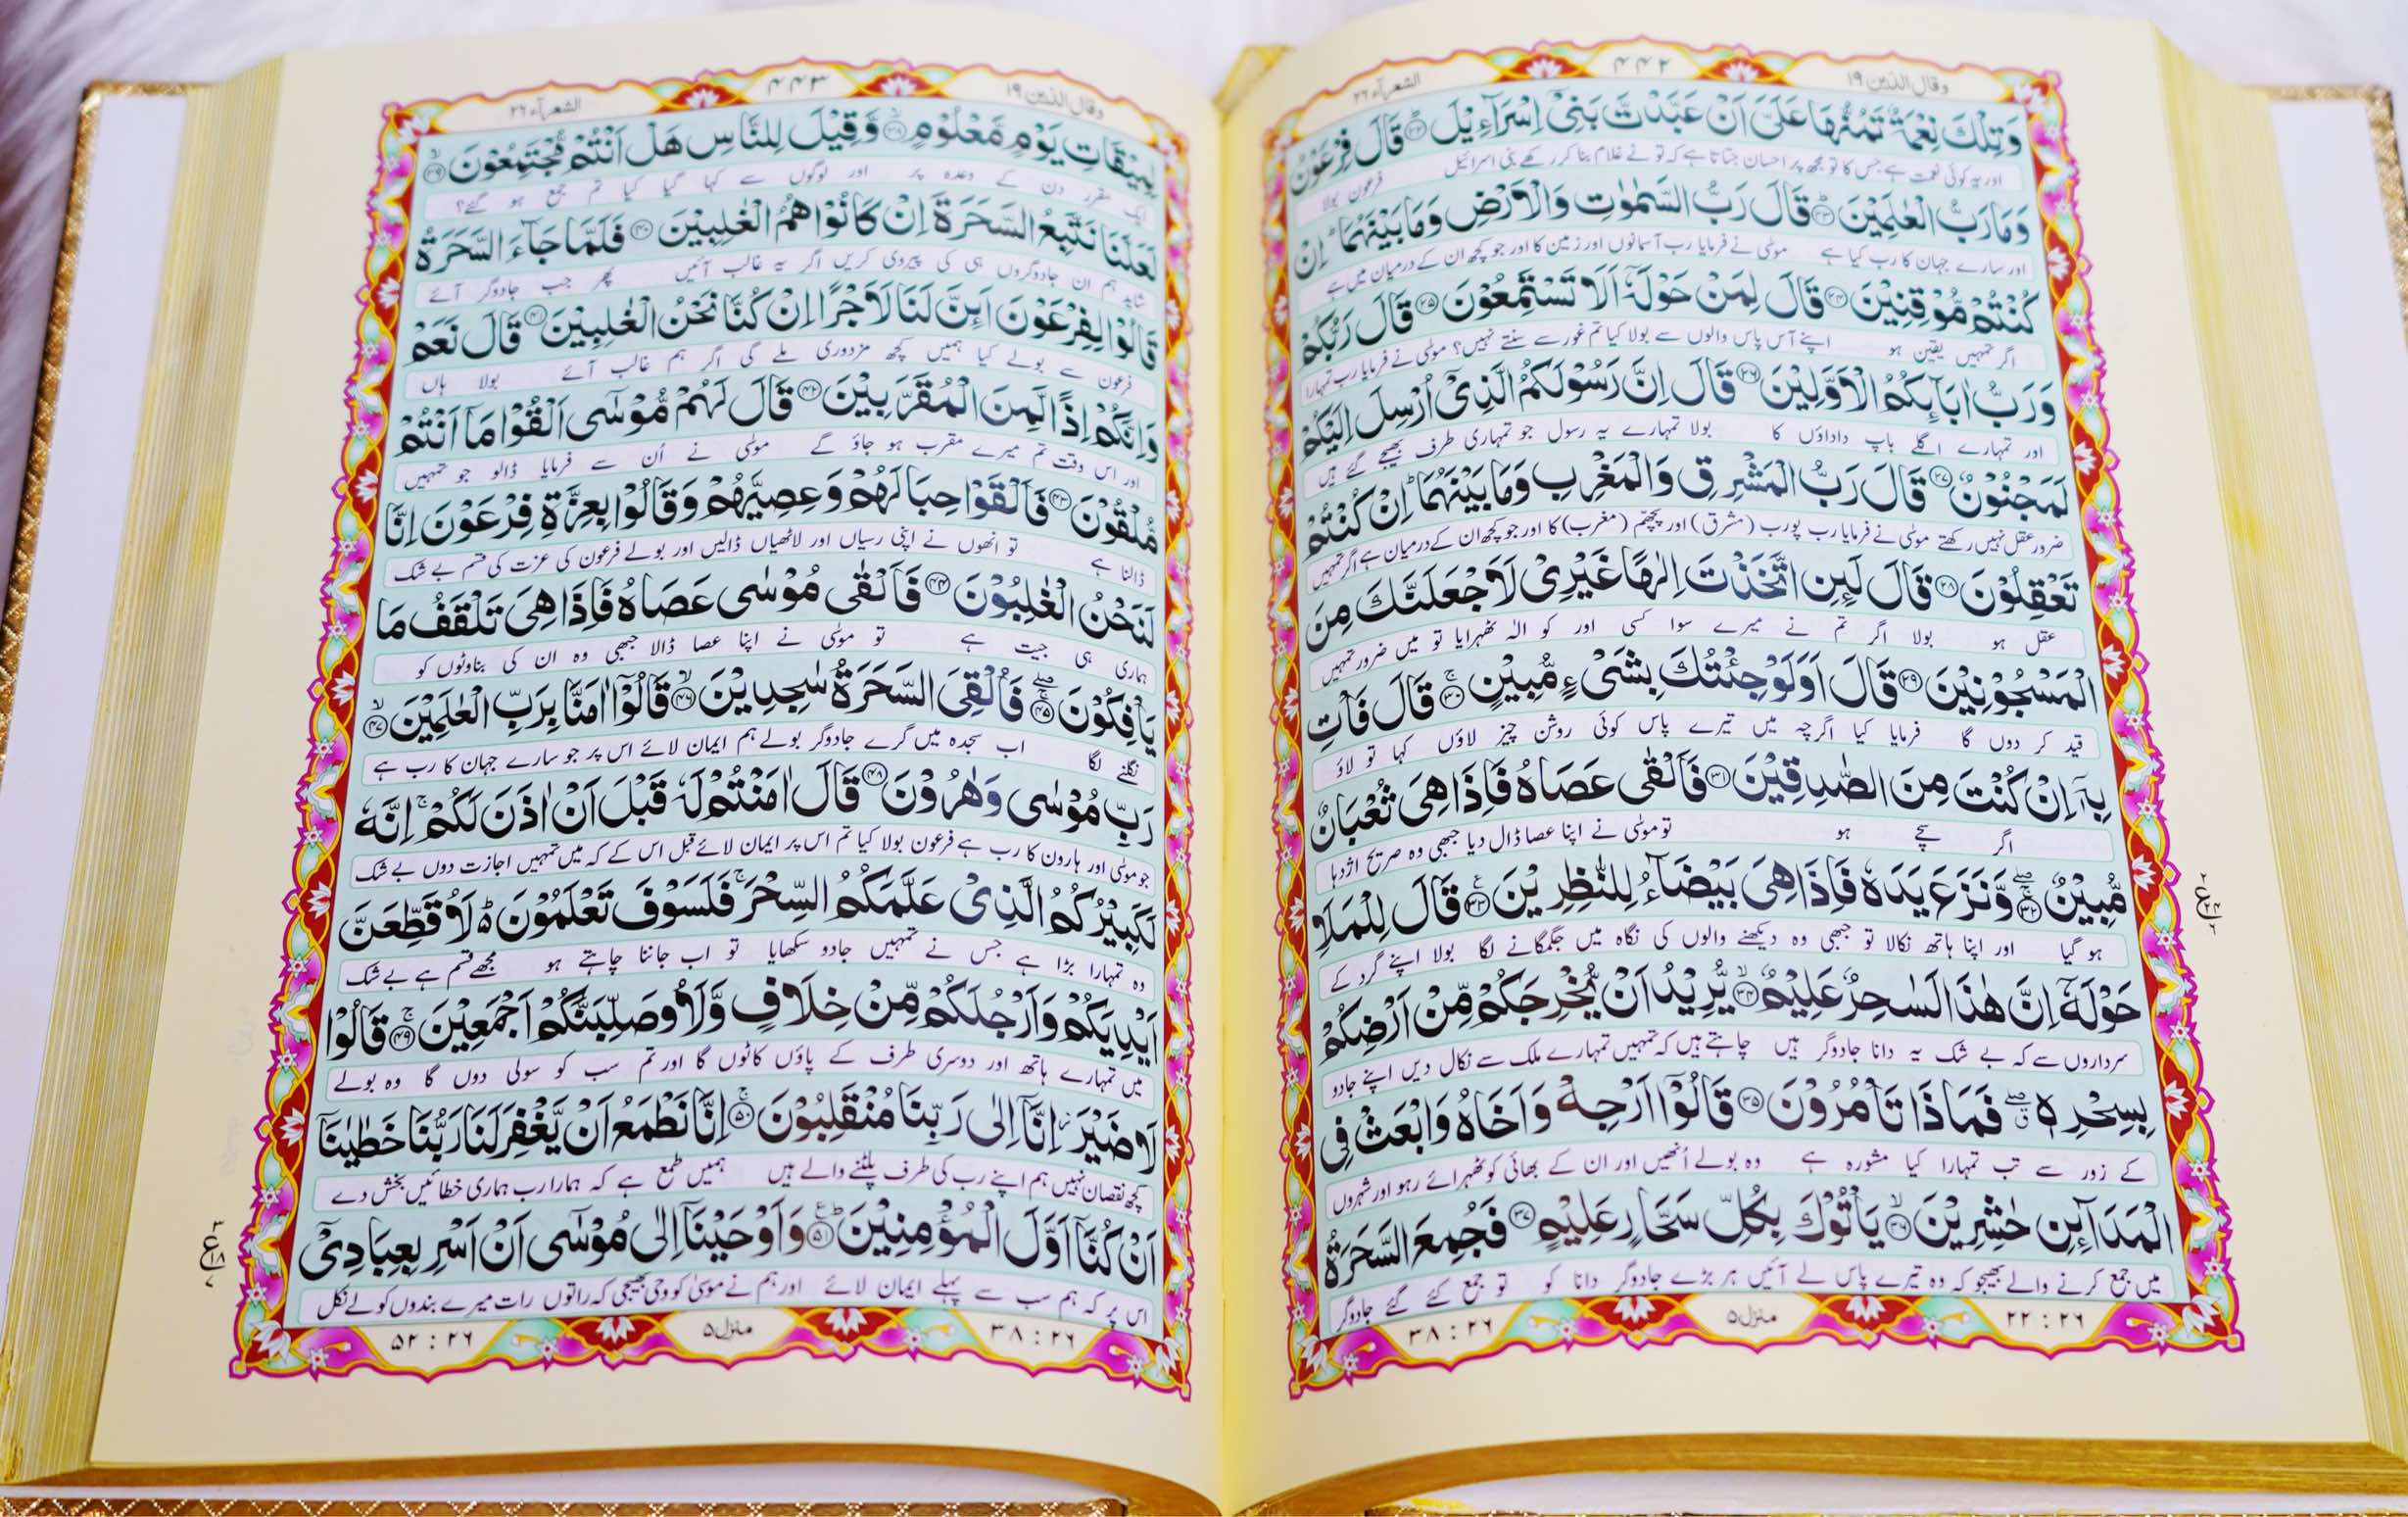 وقال الذین ۱۹
۴۴۲
الشعرآء ۲۶
وَتِلْكَ نِعْمَةٌ تَمُنُّهَا عَلَيَّ اَنْ عَبَّدْتَّ بَنِيْٓ اِسْرَآءِيْلَ ۟ؕ۲۲ قَالَ فِرْعَوْنُ
اور یہ کوئی نعمت ہے جس کا تو مجھ پر احسان جتاتا ہے کہ تو نے غلام بنا کر رکھے بنی اسرائیل فرعون بولا
وَمَا رَبُّ الْعٰلَمِيْنَ ؕ۲۳ قَالَ رَبُّ السَّمٰوٰتِ وَالْاَرْضِ وَمَا بَيْنَهُمَا ؕ اِنْ
اور سارے جہان کا رب کیا ہے موسٰی نے فرمایا رب آسمانوں اور زمین کا اور جو کچھ ان کے درمیان میں ہے
كُنْتُمْ مُّوْقِنِيْنَ ۲۴ قَالَ لِمَنْ حَوْلَهٗٓ اَلَا تَسْتَمِعُوْنَ ۲۵ قَالَ رَبُّكُمْ
اگر تمہیں یقین ہو اپنے آس پاس والوں سے بولا کیا تم غور سے سنتے نہیں؟ موسٰی نے فرمایا رب تمہارا
وَرَبُّ اٰبَآئِكُمُ الْاَوَّلِيْنَ ۲۶ قَالَ اِنَّ رَسُوْلَكُمُ الَّذِيْٓ اُرْسِلَ اِلَيْكُمْ
اور تمہارے اگلے باپ داداؤں کا بولا تمہارے یہ رسول جو تمہاری طرف بھیجے گئے ہیں
لَمَجْنُوْنٌ ۲۷ قَالَ رَبُّ الْمَشْرِقِ وَالْمَغْرِبِ وَمَا بَيْنَهُمَا ؕ اِنْ كُنْتُمْ
ضرور عقل نہیں رکھتے موسٰی نے فرمایا رب پورب (مشرق) اور پچھم (مغرب) کا اور جو کچھ ان کے درمیان ہے اگر تمہیں
تَعْقِلُوْنَ ۲۸ قَالَ لَئِنِ اتَّخَذْتَ اِلٰهًا غَيْرِيْ لَاَجْعَلَنَّكَ مِنَ
عقل ہو بولا اگر تم نے میرے سوا کسی اور کو الٰہ ٹھہرایا تو میں ضرور تمہیں
الْمَسْجُوْنِيْنَ ۲۹ قَالَ اَوَلَوْ جِئْتُكَ بِشَيْءٍ مُّبِيْنٍ ۚ۳۰ قَالَ فَاْتِ
قید کر دوں گا فرمایا کیا اگرچہ میں تیرے پاس کوئی روشن چیز لاؤں کہا تو لاؤ
بِهٖٓ اِنْ كُنْتَ مِنَ الصّٰدِقِيْنَ ۳۱ فَاَلْقٰى عَصَاهُ فَاِذَا هِيَ ثُعْبَانٌ
اگر سچے ہو تو موسٰی نے اپنا عصا ڈال دیا جبھی وہ صریح اژدہا
مُّبِيْنٌ ۚۖ۳۲ وَّنَزَعَ يَدَهٗ فَاِذَا هِيَ بَيْضَآءُ لِلنّٰظِرِيْنَ ۳۳ قَالَ لِلْمَلَاِ
ہو گیا اور اپنا ہاتھ نکالا تو جبھی وہ دیکھنے والوں کی نگاہ میں جگمگانے لگا بولا اپنے گرد کے
حَوْلَهٗٓ اِنَّ هٰذَا لَسٰحِرٌ عَلِيْمٌ ۙ۳۴ يُّرِيْدُ اَنْ يُّخْرِجَكُمْ مِّنْ اَرْضِكُمْ
سرداروں سے کہ بے شک یہ دانا جادوگر ہیں چاہتے ہیں کہ تمہیں تمہارے ملک سے نکال دیں اپنے جادو
بِسِحْرِهٖ ۖق فَمَاذَا تَاْمُرُوْنَ ۳۵ قَالُوْٓا اَرْجِهْ وَاَخَاهُ وَابْعَثْ فِي
کے زور سے تب تمہارا کیا مشورہ ہے وہ بولے اُنھیں اور ان کے بھائی کو ٹھہرائے رہو اور شہروں
الْمَدَآئِنِ حٰشِرِيْنَ ۙ۳۶ يَاْتُوْكَ بِكُلِّ سَحَّارٍ عَلِيْمٍ ۳۷ فَجُمِعَ السَّحَرَةُ
میں جمع کرنے والے بھیجو کہ وہ تیرے پاس لے آئیں ہر بڑے جادوگر دانا کو تو جمع کئے گئے جادوگر
۲۲ : ۲۶
منزل ۵
۳۸ : ۲۶
وقال الذین ۱۹
۴۴۳
الشعرآء ۲۶
لِمِيْقَاتِ يَوْمٍ مَّعْلُوْمٍ ۙ۳۸ وَّقِيْلَ لِلنَّاسِ هَلْ اَنْتُمْ مُّجْتَمِعُوْنَ ۙ۳۹
ایک مقرر دن کے وعدہ پر اور لوگوں سے کہا گیا کیا تم جمع ہو گئے؟
لَعَلَّنَا نَتَّبِعُ السَّحَرَةَ اِنْ كَانُوْا هُمُ الْغٰلِبِيْنَ ۴۰ فَلَمَّا جَآءَ السَّحَرَةُ
شاید ہم ان جادوگروں ہی کی پیروی کریں اگر یہ غالب آئیں پھر جب جادوگر آئے
قَالُوْا لِفِرْعَوْنَ اَئِنَّ لَنَا لَاَجْرًا اِنْ كُنَّا نَحْنُ الْغٰلِبِيْنَ ۴۱ قَالَ نَعَمْ
فرعون سے بولے کیا ہمیں کچھ مزدوری ملے گی اگر ہم غالب آئے بولا ہاں
وَاِنَّكُمْ اِذًا لَّمِنَ الْمُقَرَّبِيْنَ ۴۲ قَالَ لَهُمْ مُّوْسٰٓى اَلْقُوْا مَآ اَنْتُمْ
اور اس وقت تم میرے مقرب ہو جاؤ گے موسٰی نے اُن سے فرمایا ڈالو جو تمہیں
مُّلْقُوْنَ ۴۳ فَاَلْقَوْا حِبَالَهُمْ وَعِصِيَّهُمْ وَقَالُوْا بِعِزَّةِ فِرْعَوْنَ اِنَّا
ڈالنا ہے تو انھوں نے اپنی رسیاں اور لاٹھیاں ڈالیں اور بولے فرعون کی عزت کی قسم بے شک
لَنَحْنُ الْغٰلِبُوْنَ ۴۴ فَاَلْقٰى مُوْسٰى عَصَاهُ فَاِذَا هِيَ تَلْقَفُ مَا
ہماری ہی جیت ہے تو موسٰی نے اپنا عصا ڈالا جبھی وہ ان کی بناوٹوں کو
يَاْفِكُوْنَ ۚۖ۴۵ فَاُلْقِيَ السَّحَرَةُ سٰجِدِيْنَ ۙ۴۶ قَالُوْٓا اٰمَنَّا بِرَبِّ الْعٰلَمِيْنَ ۙ۴۷
نگلنے لگا اب سجدہ میں گرے جادوگر بولے ہم ایمان لائے اس پر جو سارے جہان کا رب ہے
رَبِّ مُوْسٰى وَهٰرُوْنَ ۴۸ قَالَ اٰمَنْتُمْ لَهٗ قَبْلَ اَنْ اٰذَنَ لَكُمْ ۚ اِنَّهٗ
جو موسٰی اور ہارون کا رب ہے فرعون بولا کیا تم اس پر ایمان لائے قبل اس کے کہ میں تمہیں اجازت دوں بے شک
لَكَبِيْرُكُمُ الَّذِيْ عَلَّمَكُمُ السِّحْرَ ۚ فَلَسَوْفَ تَعْلَمُوْنَ ۬ؕ لَاُقَطِّعَنَّ
وہ تمہارا بڑا ہے جس نے تمہیں جادو سکھایا تو اب جاننا چاہتے ہو مجھے قسم ہے بے شک
اَيْدِيَكُمْ وَاَرْجُلَكُمْ مِّنْ خِلَافٍ وَّلَاُوصَلِّبَنَّكُمْ اَجْمَعِيْنَ ۚ۴۹ قَالُوْا
میں تمہارے ہاتھ اور دوسری طرف کے پاؤں کاٹوں گا اور تم سب کو سولی دوں گا وہ بولے
لَا ضَيْرَ ؗ اِنَّآ اِلٰى رَبِّنَا مُنْقَلِبُوْنَ ۚ۵۰ اِنَّا نَطْمَعُ اَنْ يَّغْفِرَ لَنَا رَبُّنَا خَطٰيٰنَآ
کچھ نقصان نہیں ہم اپنے رب کی طرف پلٹنے والے ہیں ہمیں طمع ہے کہ ہمارا رب ہماری خطائیں بخش دے
اَنْ كُنَّآ اَوَّلَ الْمُؤْمِنِيْنَ ؕ۵۱ وَاَوْحَيْنَآ اِلٰى مُوْسٰٓى اَنْ اَسْرِ بِعِبَادِيْٓ
اس پر کہ ہم سب سے پہلے ایمان لائے اور ہم نے موسیٰ کو وحی بھیجی کہ راتوں رات میرے بندوں کو لے نکل
۳۸ : ۲۶
منزل ۵
۵۲ : ۲۶